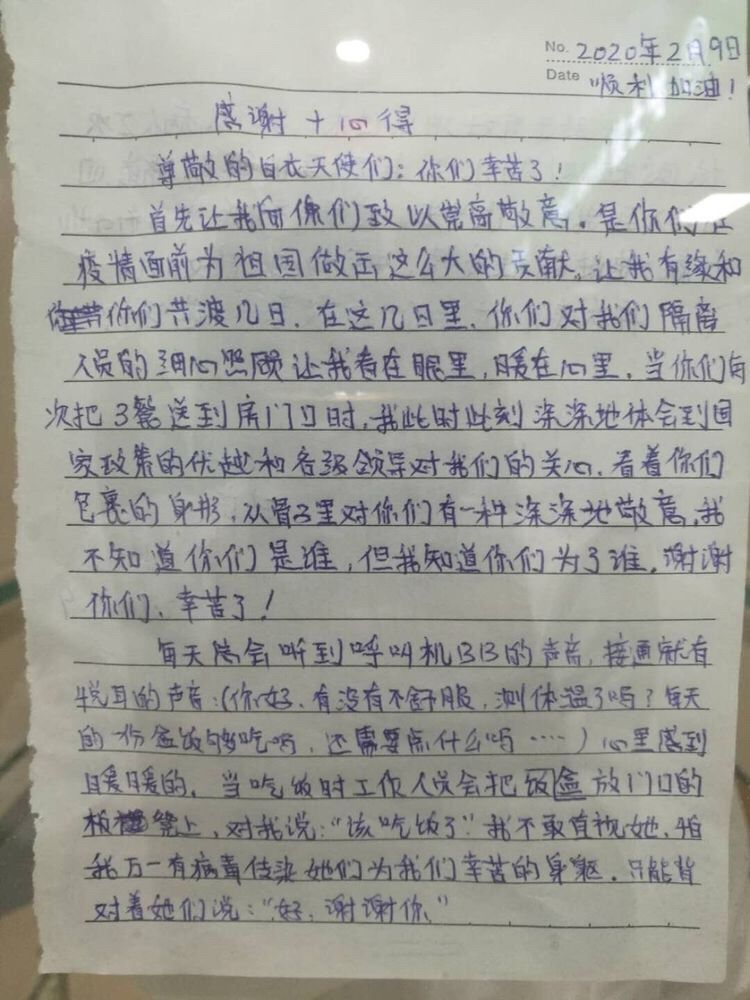 No. 2020年2月9日
Date 顺利加油!
感谢+心得
尊敬的白衣天使们:你们辛苦了!
首先让我向你们致以崇高敬意。是你们在
疫情面前为祖国做出这么大的贡献。让我有缘和
你们共渡几日。在这几日里,你们对我们隔离
人员的细心照顾让我看在眼里,暖在心里。当你们每
次把3餐送到房门口时,我此时此刻深深地体会到国
家政策的优越和各级领导对我们的关心。看着你们
包裹的身形,从骨子里对你们有一种深深地敬意,我
不知道你们是谁,但我知道你们为了谁。谢谢
你们、辛苦了!
每天总会听到呼叫机BB的声音,接通就有
悦耳的声音:(你好,有没有不舒服,测体温了吗?每天
的一份盒饭够吃吗,还需要点什么吗……)心里感到
暖暖的。当吃饭时工作人员会把饭盒放门口的
板凳上,对我说:“该吃饭了”我不敢直视她,怕
我万一有病毒传染她们为我们辛苦的身躯。只能背
对着她们说:“好,谢谢你。”